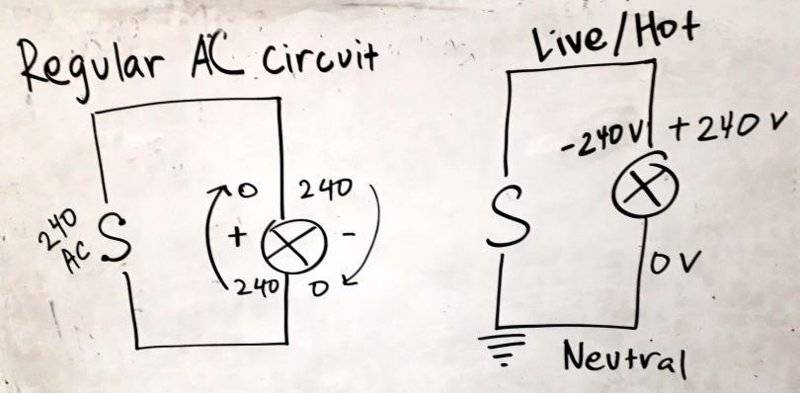 Regular AC Circuit
Live/Hot
240
AC
S
0
240
+
-
240
0
S
-240V
+240V
0V
Neutral